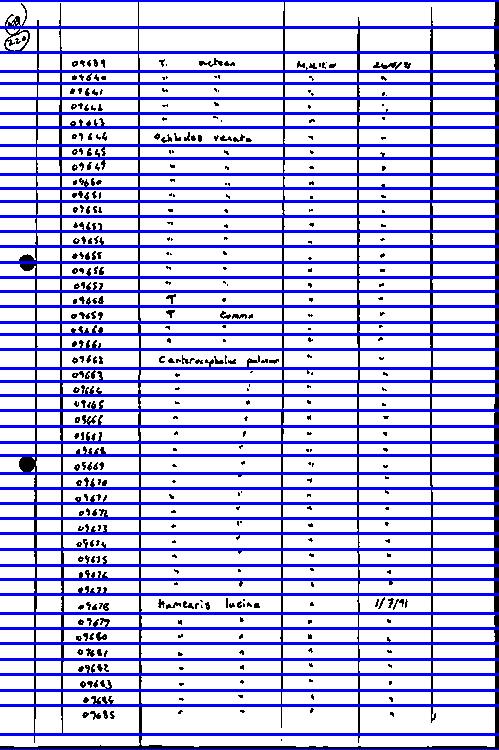 220
09639 T. acteon
09640 " " " "
09641 " " " "
09642 " " " "
09643 " " " "
09644 Ochlodes venata " "
09645 " " " "
09647 " " " "
09650 " " " "
09651 " " " "
09652 " " " "
09653 " " " "
09654 " " " "
09655 " " " "
09656 " " " "
09657 " " " "
09658 T " " "
09659 T comma " "
09660 " " " "
09661 " " " "
09662 Carterocephalus palaemon " "
09663 " " " "
09664 " " " "
09665 " " " "
09666 " " " "
09667 " " " "
09668 " " " "
09669 " " " "
09670 " " " "
09671 " " " "
09672 " " " "
09673 " " " "
09674 " " " "
09675 " " " "
09676 " " " "
09677 " " " "
09678 Hamearis lucina " 1/7/91
09679 " " " "
09680 " " " "
09681 " " " "
09682 " " " "
09683 " " " "
09684 " " " "
09685 " " " "